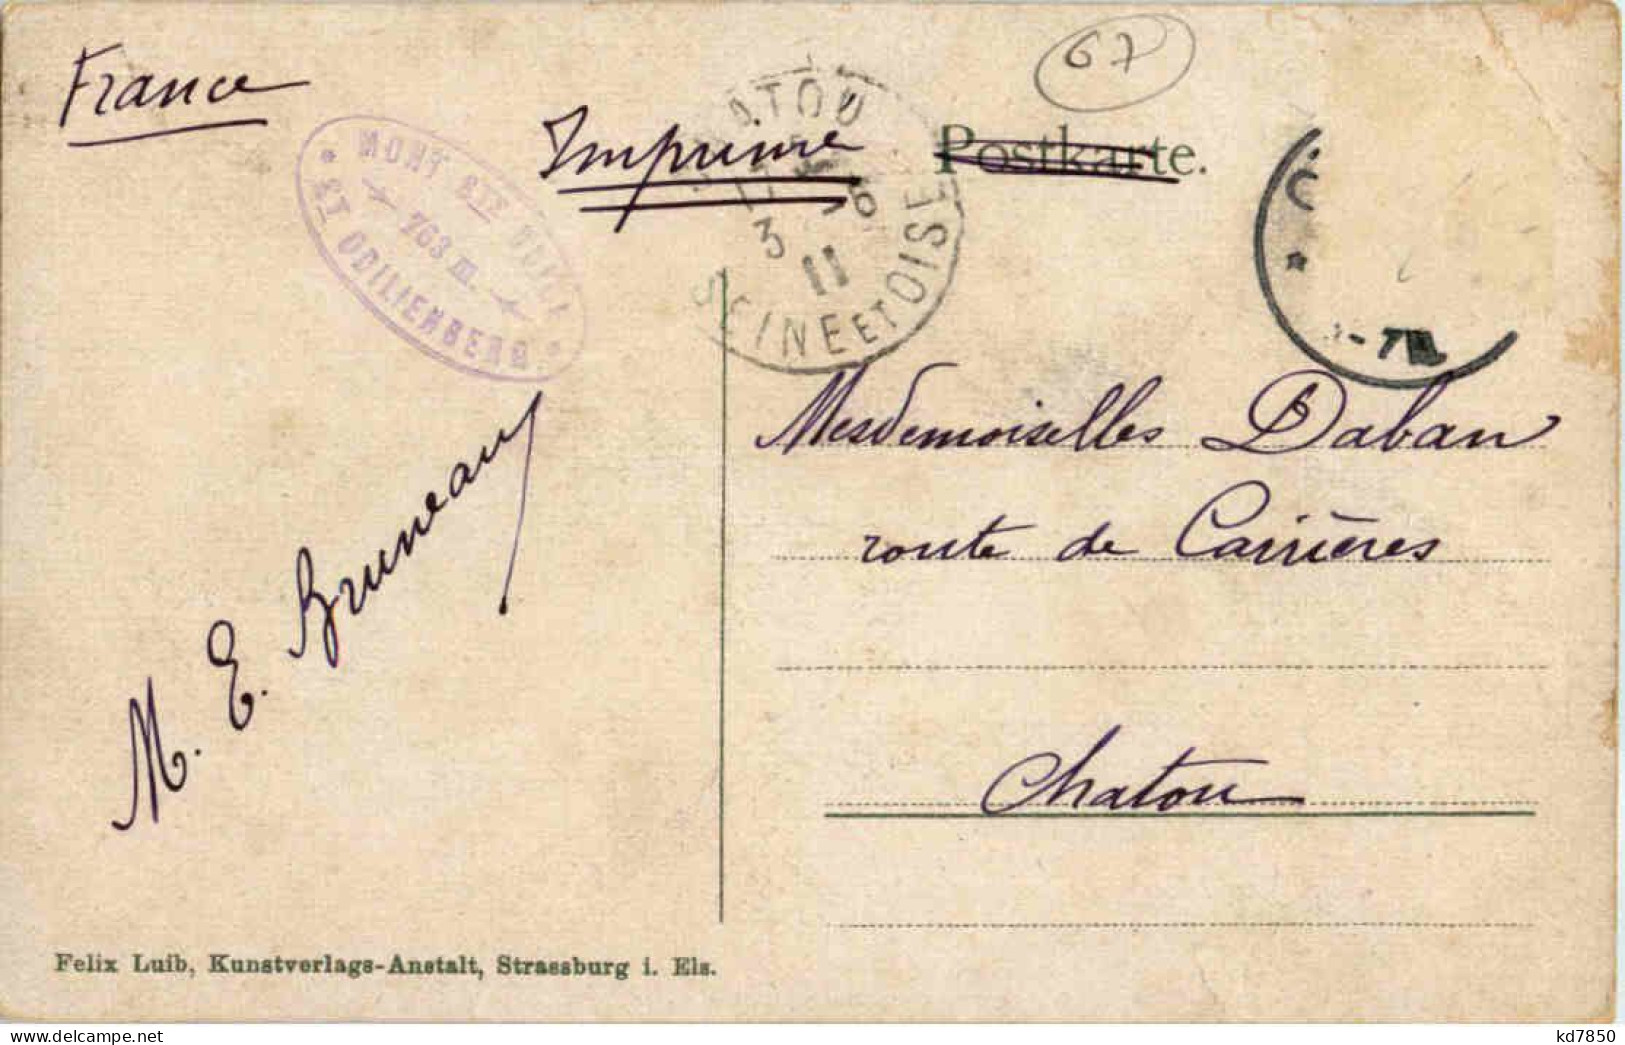 67
France
Imprimé
Postkarte.
MONT STE ODILE
763 m.
ST ODILIENBERG
CHATOU
3 8
11
SEINE ET OISE
Mesdemoiselles Daban
route de Carrières
Chatou
M. E. Bruneau
Felix Luib, Kunstverlags-Anstalt, Strassburg i. Els.
kd7850